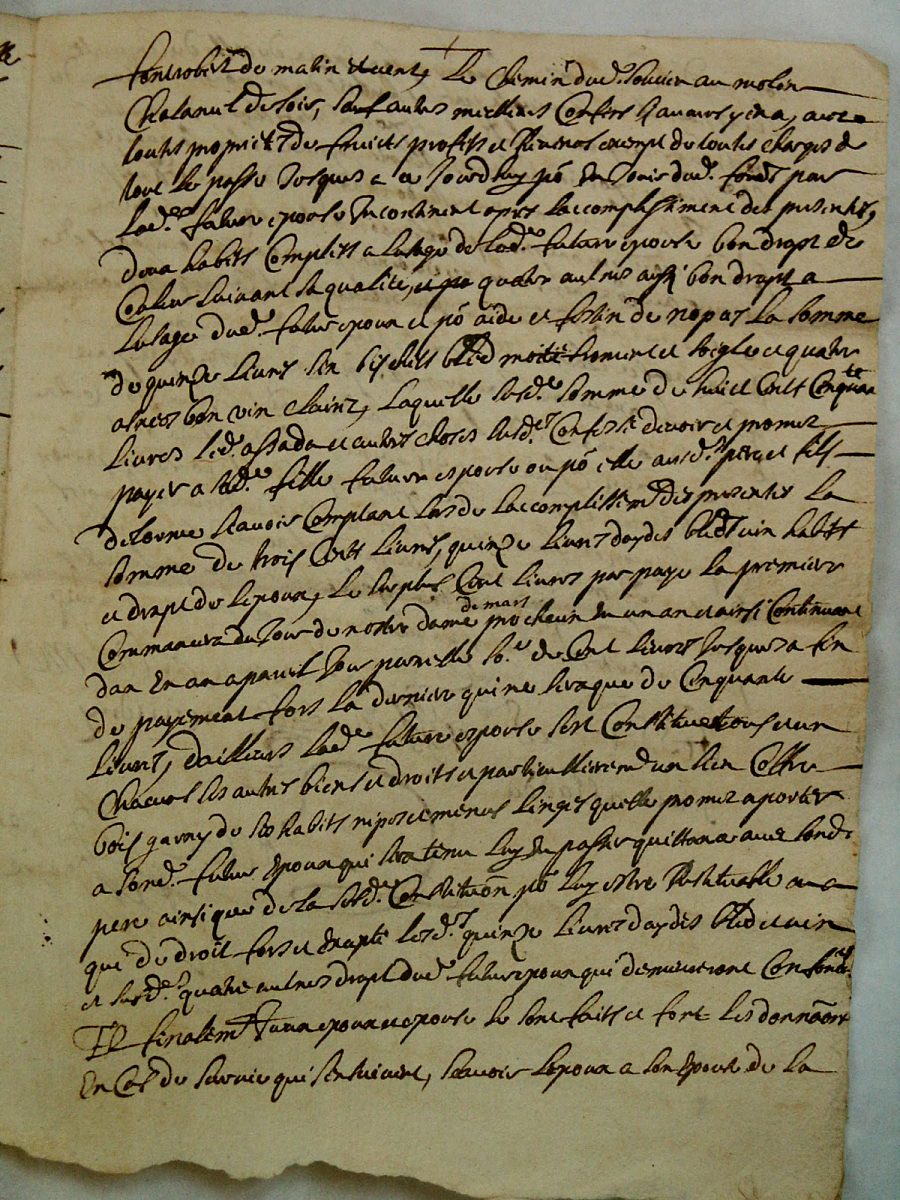 de matin et vent, Le Chemin dud. au molin
de soir, sauf autres meilleurs Confins avec
toutes proprietes de fruicts proffits et exempt de toutes charges de
tout le passe Jusques a ce Jourdhuy po. dud. fonds par
lad. future espouse Incontinent apres laccomplissiment des presentes,
deux habits Complets a lusage de lad. future espouse bon drapt de
Coleur suivant sa qualite, et po quatre aulnes aussi bon drapt a
Lusage dud. futur epoux et po aide et festin de nopces La somme
de quinze livres six bischets bled moitie froment et soigle et quatre
asnees bon vin clairet, Laquelle susd.e somme de huict Cents Cinqua.te
Livres led. assada et autres choses susd.es Confesse devoir et promet
payer a lad.e fille future espouse ou po elle ausd.s pere et fils
delorme scavoir Comptant lors de laccomplissem.t des presentes La
somme de trois Cents Livres, quinze livres daydes bled vin habits
et drapt de lepoux, Le surplus Cent livres par paye la premiere
Commancera du Jour de nostre dame de mars prochein en un an et ainsi Continuant
dan En an a pareil Jour pareille so.e de Cent livres Jusques a fin
de payement fors la derniere qui ne sera que de Cinquante
Livres, dailleurs lad.e future espouse sest Constituee tous et un
Chacuns ses autres biens et droits et particullierement un sien Coffre
bois garny de ses habits menus linges quelle promet aporter
a sond. futur Epoux qui sera tenu luy En passer quittance avec sond.
pere ainsi que de la susd.e Constitution po. luy estre Restituable ou a
qui de droit fors et Excepte lesd.s quinze livres daydes bled et vin
et lesd.s quatre aulnes drapt dud. futur epoux qui demeureront
Et finalem.t epoux et epouse se sont faits et font les donnaons
En Cas de survie qui sensuivent, scavoir lepoux a son Epouse de la